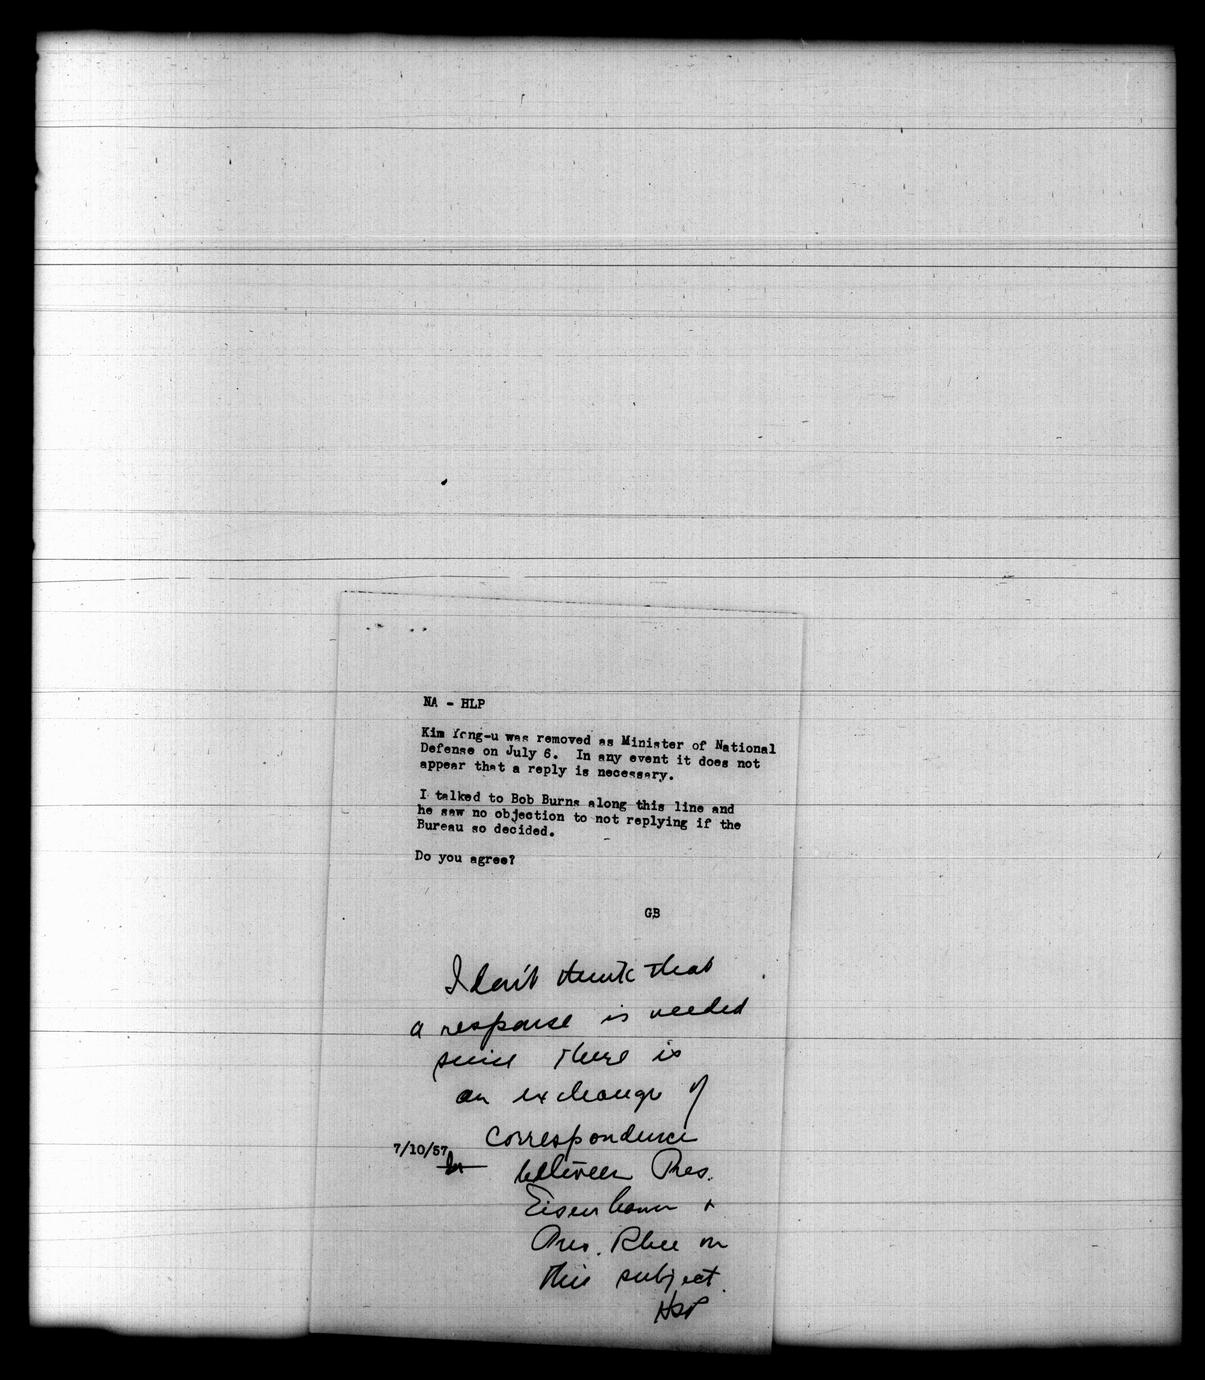 NA - HLP
Kim Yong-u was removed as Minister of National
Defense on July 6. In any event it does not
appear that a reply is necessary.
I talked to Bob Burns along this line and
he saw no objection to not replying if the
Bureau so decided.
Do you agree?
GB
I don't think that
a response is needed
since there is
an exchange of
correspondence
7/10/57
between Pres.
Eisenhower +
Pres. Rhee on
this subject.
HLP